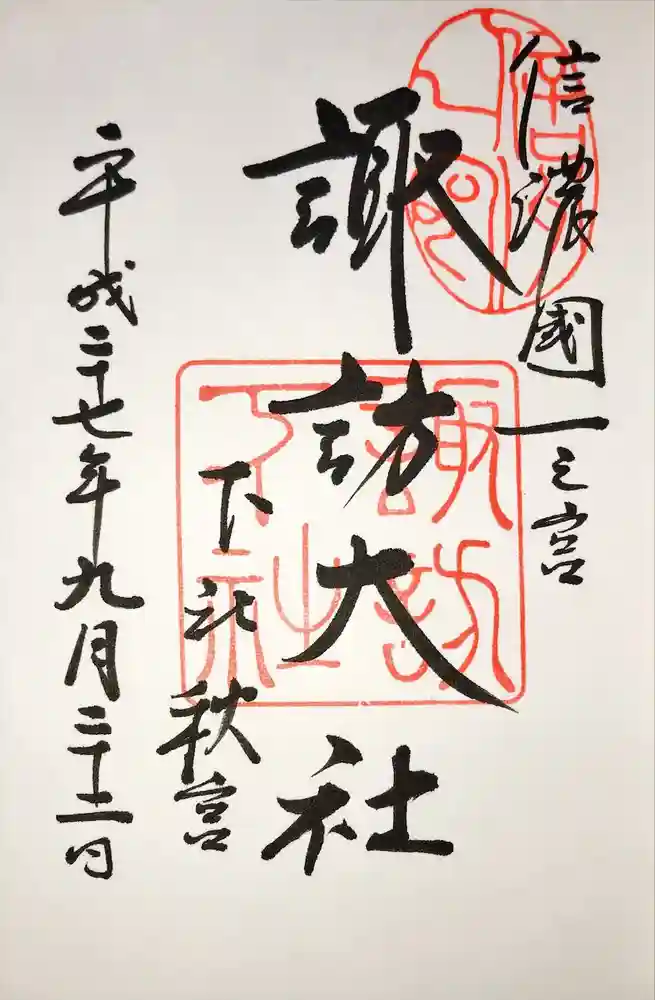 信濃國一之宮
諏訪大社
下社秋宮
平成二十七年九月二十二日